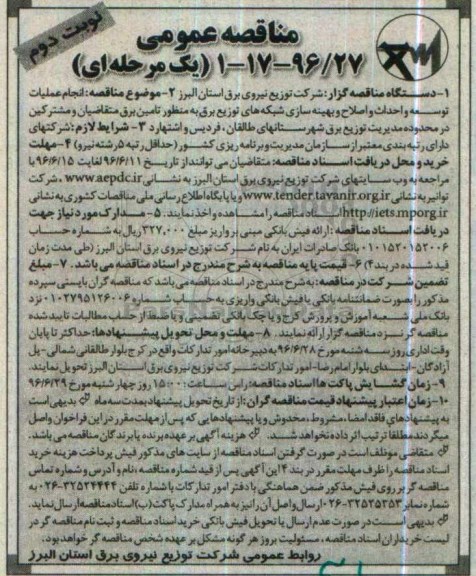 نوبت دوم
مناقصه عمومی
۹۶/۲۷-۱۷-۱ (یک مرحله ای)
۱- دستگاه مناقصه گزار: شرکت توزیع نیروی برق استان البرز ۲- موضوع مناقصه: انجام عملیات
توسعه و احداث و اصلاح و بهینه سازی شبکه های توزیع برق به منظور تامین برق متقاضیان و مشترکین
در محدوده مدیریت توزیع برق شهرستانهای طالقان، فردیس و اشتهارد ۳- شرایط لازم: شرکتهای
دارای رتبه بندی معتبر از سازمان مدیریت و برنامه ریزی کشور (حداقل رتبه ۵ رشته نیرو) ۴- مهلت
خرید و محل دریافت اسناد مناقصه: متقاضیان می توانند از تاریخ ۹۶/۶/۱۱ لغایت ۹۶/۶/۱۵ با
مراجعه به وب سایتهای شرکت توزیع نیروی برق استان البرز به نشانی www.aepdc.ir ، شرکت
توانیر به نشانی www.tender.tavanir.org.ir و یا پایگاه اطلاع رسانی ملی مناقصات کشوری به نشانی
http://iets.mporg.ir اسناد مناقصه را مشاهده و اخذ نمایند. ۵- مدارک مورد نیاز جهت
دریافت اسناد مناقصه: ارائه فیش بانکی مبنی بر واریز مبلغ ۳۲۷,۰۰۰ ریال به شماره حساب
۰۱۰۱۵۲۰۱۵۲۰۰۶ بانک صادرات ایران به نام شرکت توزیع نیروی برق استان البرز (طی مدت زمان
قید شده در بند ۴) ۶- قیمت پایه مناقصه به شرح مندرج در اسناد مناقصه می باشد. ۷- مبلغ
تضمین شرکت در مناقصه: به شرح مندرج در اسناد مناقصه می باشد که مناقصه گران بایستی سپرده
مذکور را بصورت ضمانتنامه بانکی یا فیش بانکی واریزی به حساب شماره ۰۱۰۲۷۹۵۱۲۶۰۰۶ نزد
بانک ملی شعبه آموزش و پرورش کرج و یا چک بانکی تضمینی و یا سفته از حساب مطالبات تایید شده
مناقصه گر نزد مناقصه گزار ارائه نمایند. ۸- مهلت و محل تحویل پیشنهادها: حداکثر تا پایان
وقت اداری روز سه شنبه مورخ ۹۶/۶/۲۸ به دبیرخانه امور تدارکات واقع در کرج بلوار طالقانی شمالی - پل
آزادگان - ابتدای بلوار امام رضا - امور تدارکات شرکت توزیع نیروی برق استان البرز تحویل نمایند.
۹- زمان گشایش پاکت ها اسناد مناقصه: راس ساعت ۱۵:۰۰ روز چهارشنبه مورخ ۹۶/۶/۲۹
۱۰- زمان اعتبار پیشنهاد قیمت مناقصه گران: از تاریخ تحویل پیشنهاد بمدت سه ماه بدیهی است
به پیشنهادهای فاقد امضاء، مشروط، مخدوش و یا پیشنهادهایی که پس از مهلت مقرر در این فراخوان واصل
میگردند مطلقا ترتیب اثر داده نخواهد شد. هزینه آگهی بر عهده برنده یا برندگان مناقصه می باشد.
متقاضی موظف است در صورت گرفتن اسناد مناقصه از سایت های مذکور فیش پرداخت هزینه خرید
اسناد مناقصه را ظرف مهلت مقرر در بند ۴ این آگهی پس از قید شماره مناقصه، نام و آدرس و شماره تماس
مناقصه گر بر روی فیش مذکور ضمن هماهنگی با دفتر امور تدارکات با شماره تلفن ۳۲۵۲۴۴۴۴-۰۲۶ به
شماره نمابر ۳۲۵۳۵۳۵۳-۰۲۶ ارسال و اصل آن را نیز به همراه مدارک پاکت (ب) اسناد مناقصه ارسال نماید.
بدیهی است در صورت عدم ارسال یا تحویل فیش بانکی خرید اسناد مناقصه و ثبت نام مناقصه گر در
لیست خریداران اسناد مناقصه، مسئولیت بروز هر گونه مشکل بر عهده شخص مناقصه گر خواهد بود.
روابط عمومی شرکت توزیع نیروی برق استان البرز